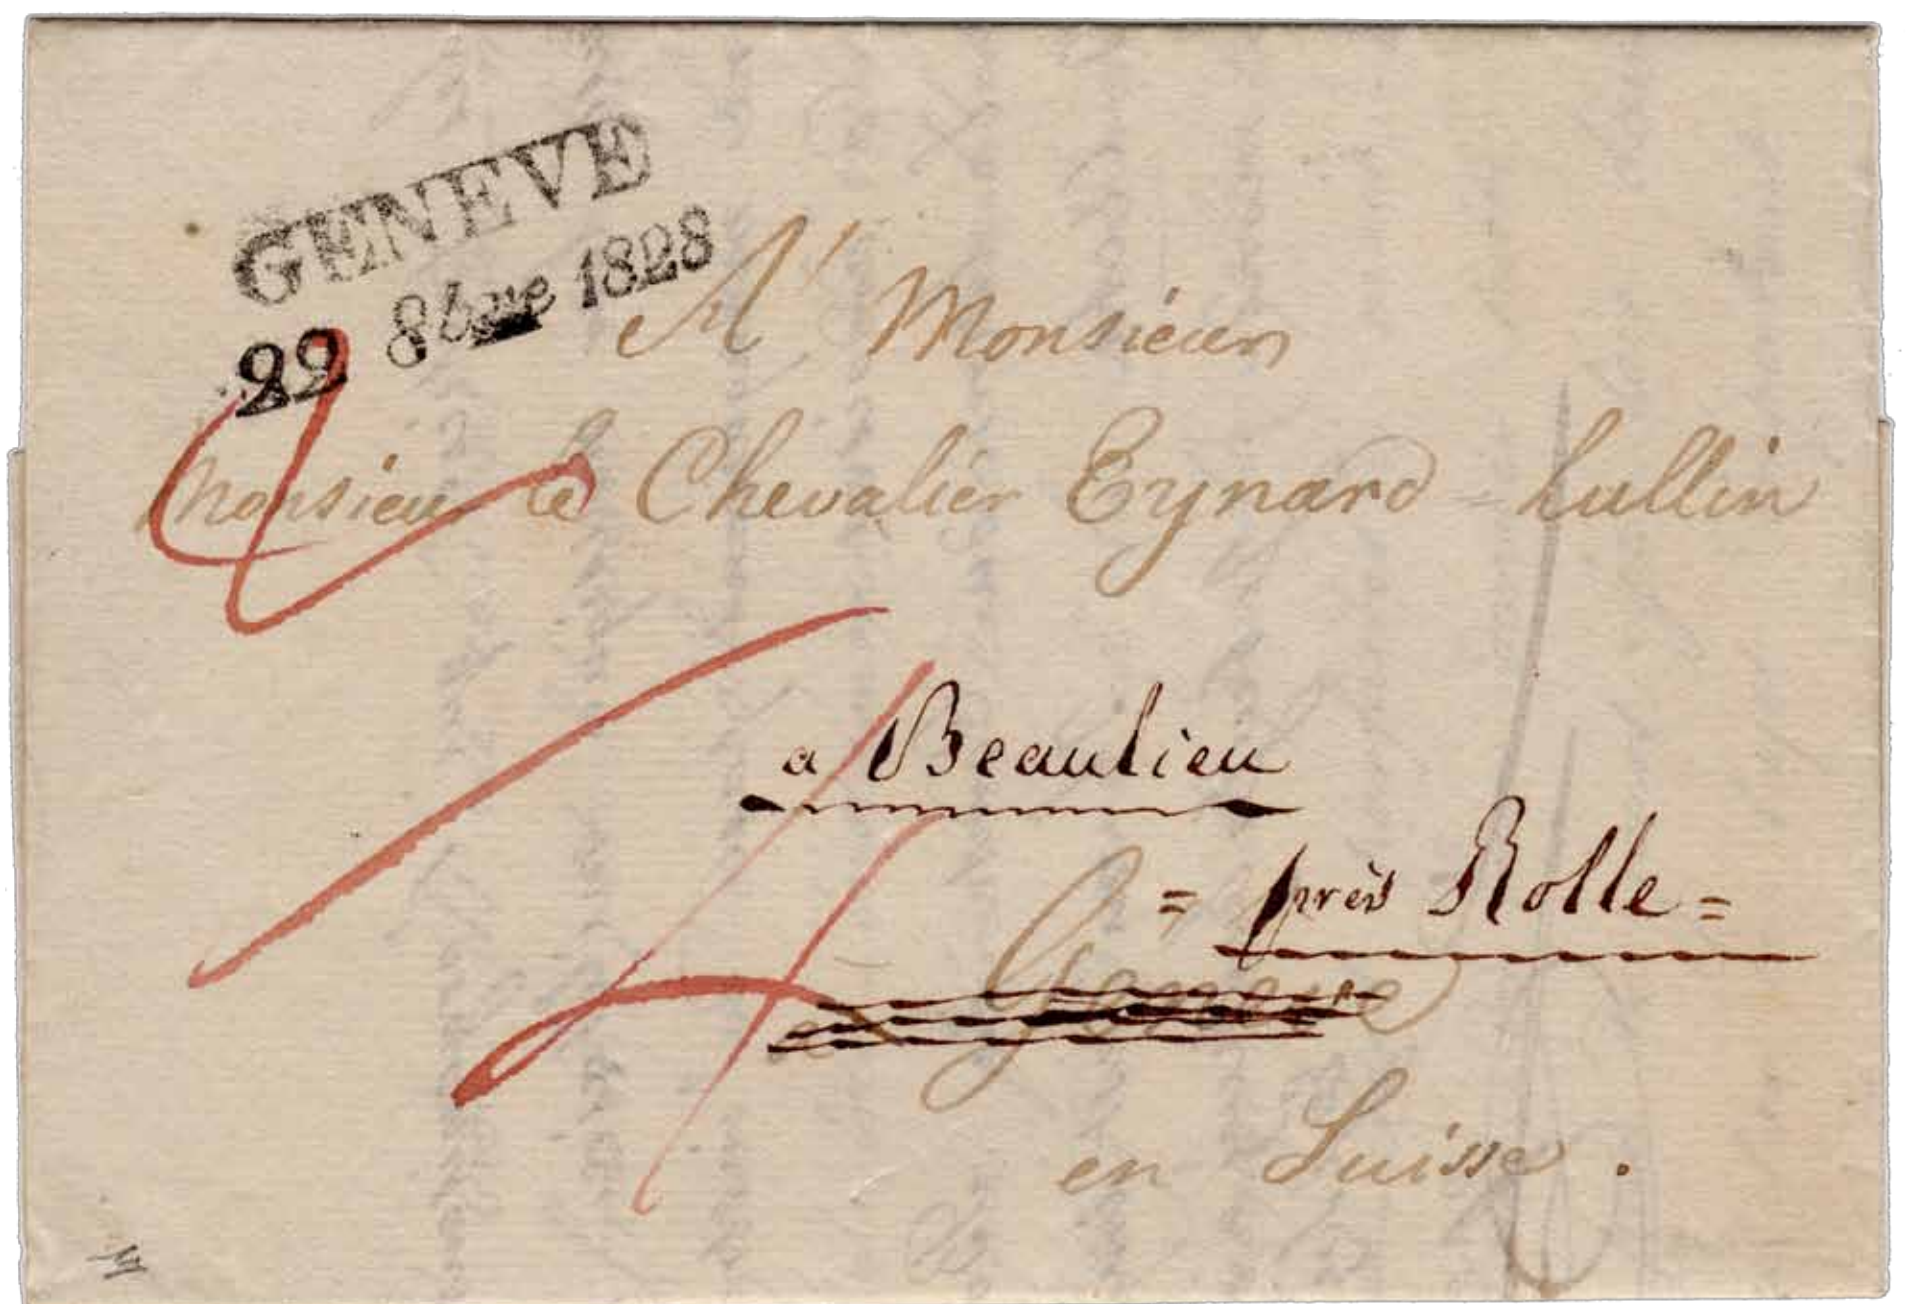 GENEVE
22 8bre 1828
A Monsieur
Monsieur le Chevalier Eynard-Lullin
a Beaulieu
= près Rolle =
à Geneve
en Suisse.